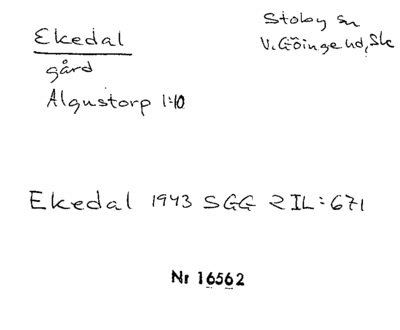 Ekedal
gård
Algustorp 1:10
Stoby sn
V. Göinge hd, Sk
Ekedal 1943 SGG 2 IL:671
Nr 16562